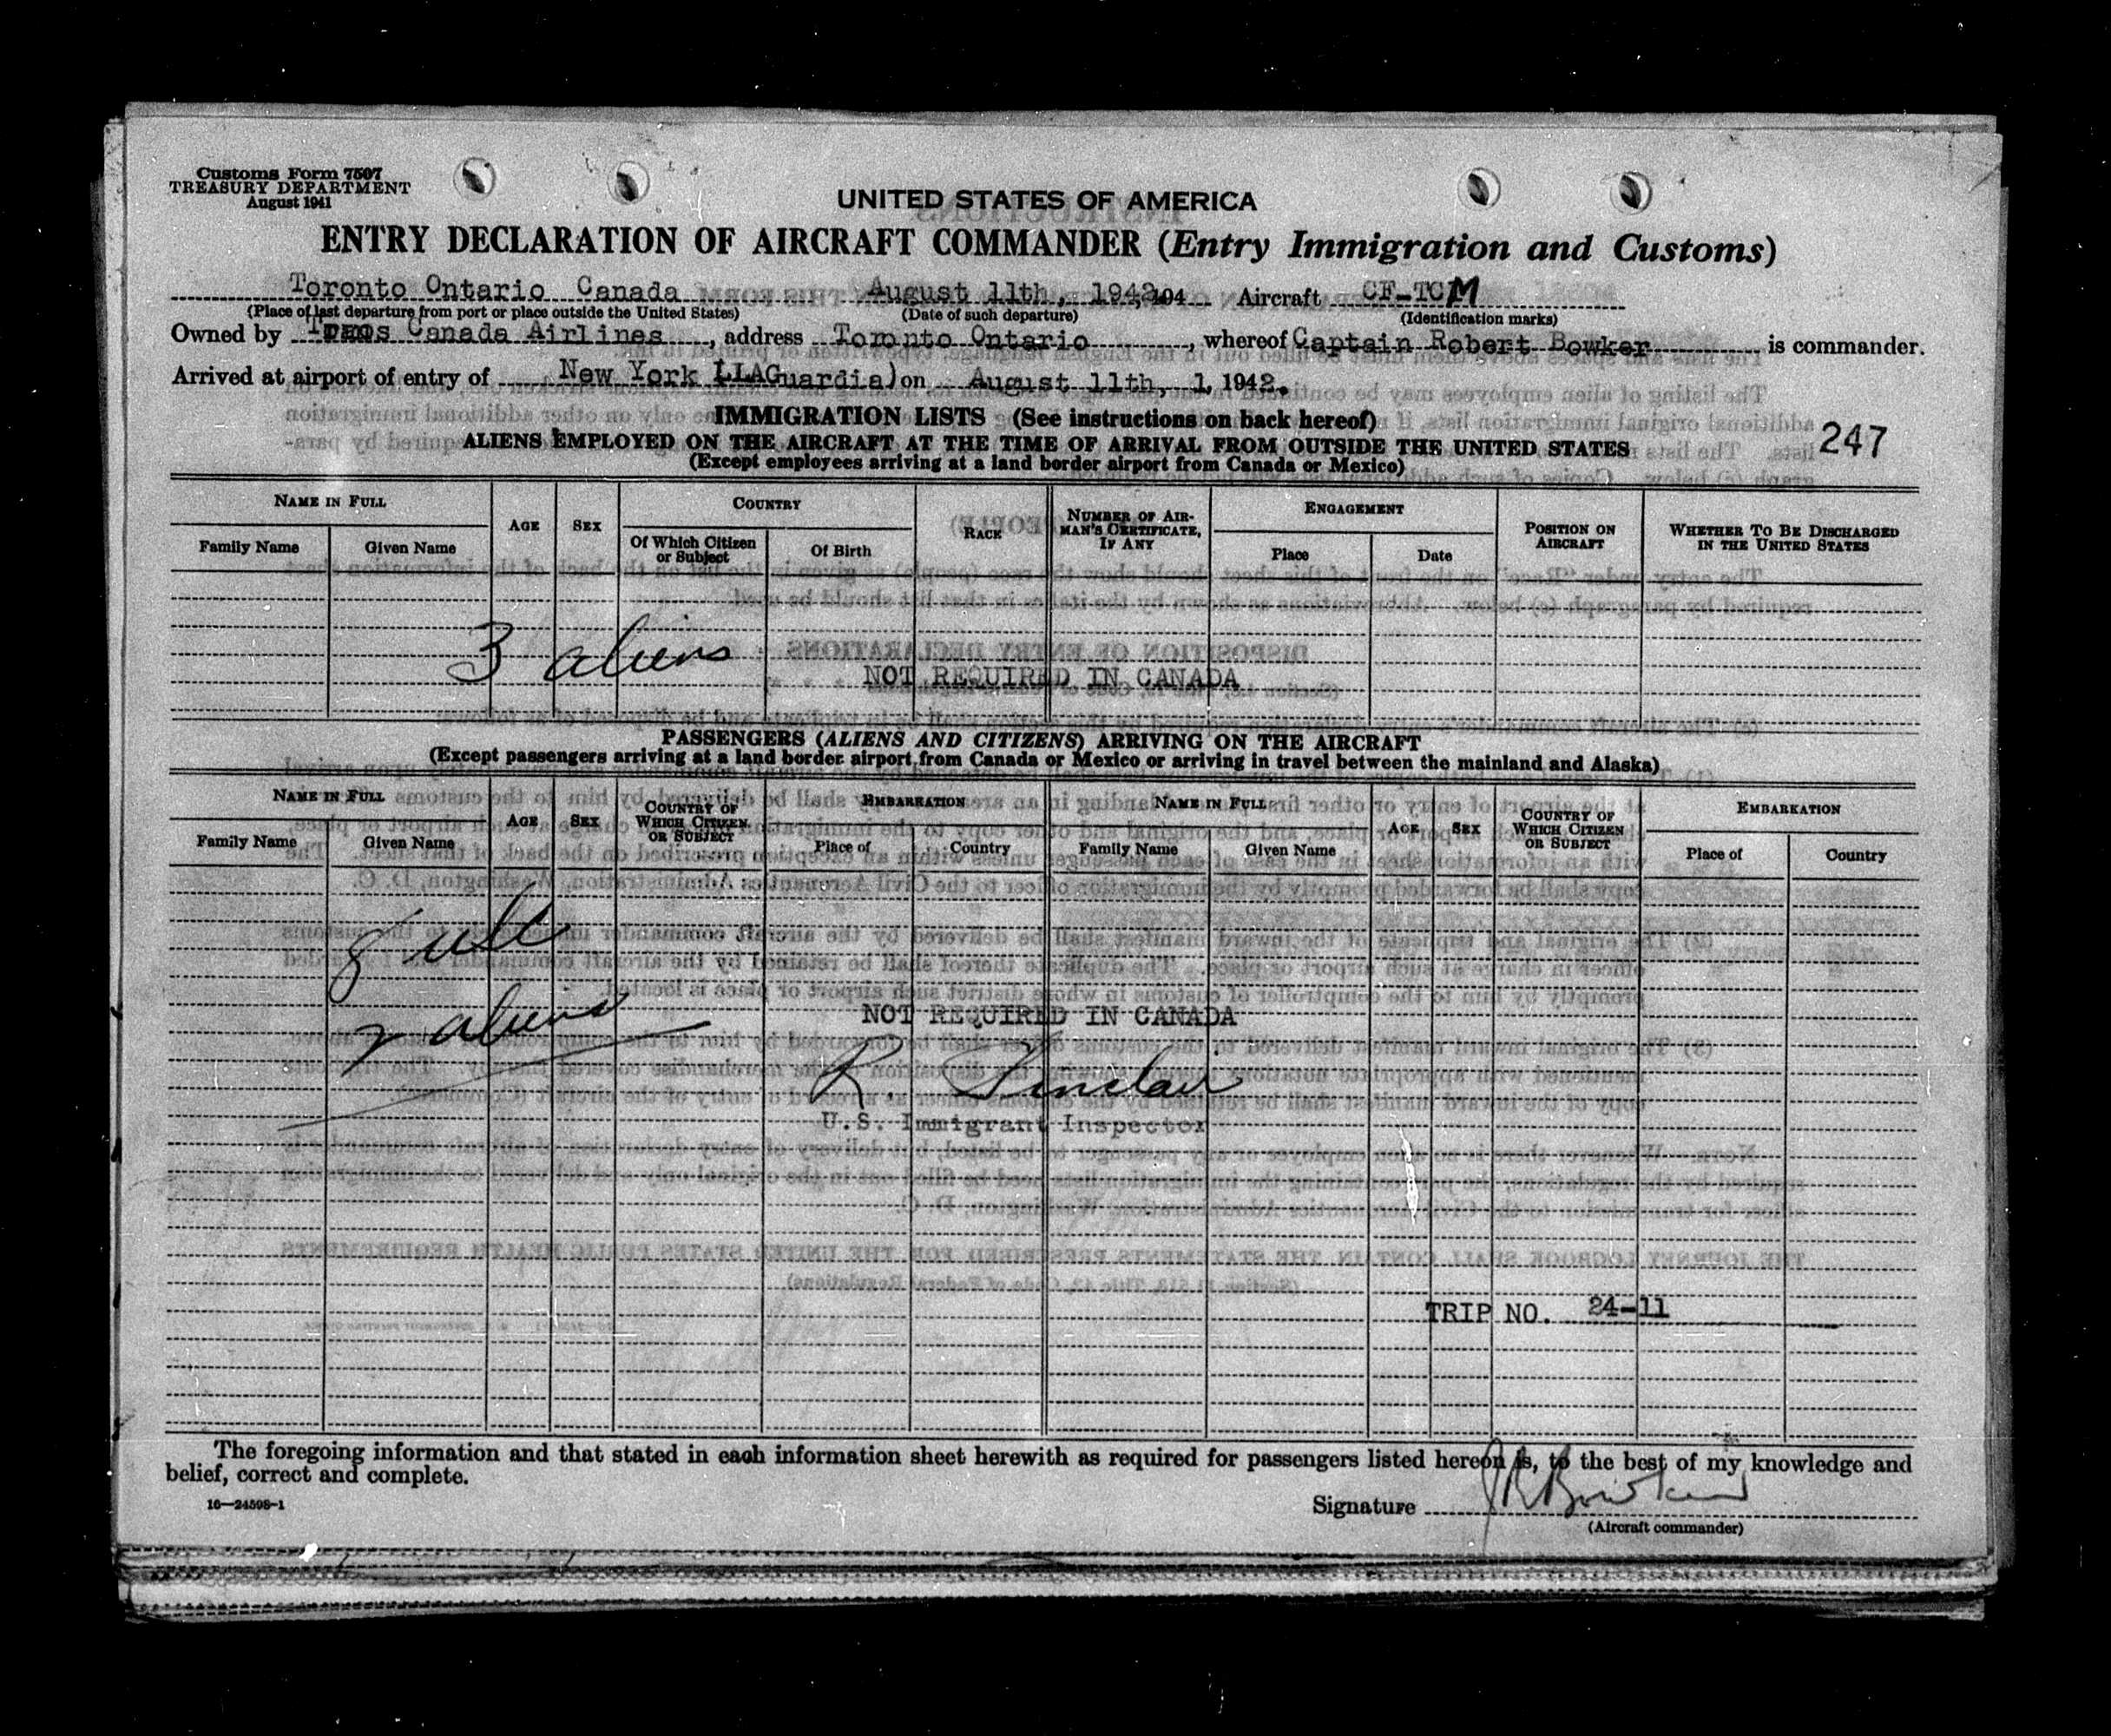 Customs Form 7507
TREASURY DEPARTMENT
August 1941
UNITED STATES OF AMERICA
ENTRY DECLARATION OF AIRCRAFT COMMANDER (Entry Immigration and Customs)
Toronto Ontario Canada August 11th, 1942, 194 Aircraft CF-TCM
(Place of last departure from port or place outside the United States) (Date of such departure) (Identification marks)
Owned by Trans Canada Airlines, address Toronto Ontario, whereof Captain Robert Bowker is commander.
Arrived at airport of entry of New York LLAGuardia) on August 11th, 1, 1942.
IMMIGRATION LISTS (See instructions on back hereof)
ALIENS EMPLOYED ON THE AIRCRAFT AT THE TIME OF ARRIVAL FROM OUTSIDE THE UNITED STATES 247
(Except employees arriving at a land border airport from Canada or Mexico)
NAME IN FULL AGE SEX COUNTRY RACE NUMBER OF AIRMAN'S CERTIFICATE, IF ANY ENGAGEMENT POSITION ON AIRCRAFT WHETHER TO BE DISCHARGED IN THE UNITED STATES
Family Name Given Name Of Which Citizen or Subject Of Birth Place Date
3 aliens
NOT REQUIRED IN CANADA
PASSENGERS (ALIENS AND CITIZENS) ARRIVING ON THE AIRCRAFT
(Except passengers arriving at a land border airport from Canada or Mexico or arriving in travel between the mainland and Alaska)
NAME IN FULL AGE SEX COUNTRY OF WHICH CITIZEN OR SUBJECT EMBARKATION NAME IN FULL AGE SEX COUNTRY OF WHICH CITIZEN OR SUBJECT EMBARKATION
Family Name Given Name Place of Country Family Name Given Name Place of Country
8
aliens
NOT REQUIRED IN CANADA
R. Sinclair
U.S. Immigrant Inspector
TRIP NO. 24-11
The foregoing information and that stated in each information sheet herewith as required for passengers listed hereon is, to the best of my knowledge and
belief, correct and complete.
16—24598-1
Signature JRBowker
(Aircraft commander)